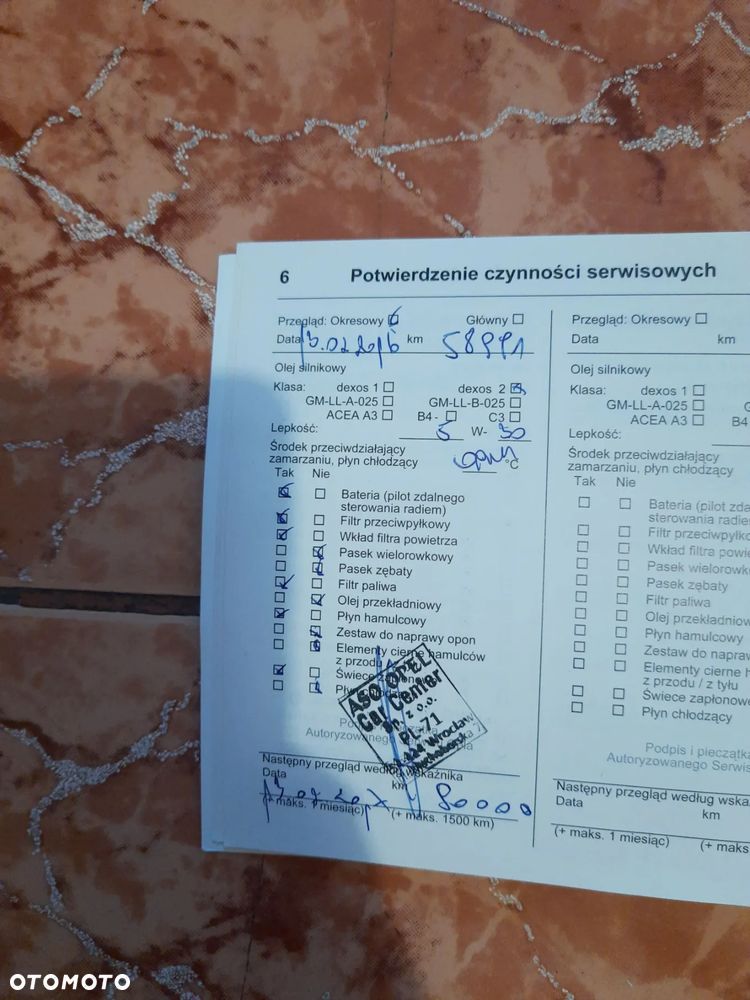 6 Potwierdzenie czynności serwisowych
Przegląd: Okresowy Główny
Data 13.02.2016 km 58991
Olej silnikowy
Klasa: dexos 1 dexos 2
GM-LL-A-025 GM-LL-B-025
ACEA A3 B4 - C3
Lepkość: 5 W- 30
Środek przeciwdziałający
zamarzaniu, płyn chłodzący °C
Tak Nie
Bateria (pilot zdalnego
sterowania radiem)
Filtr przeciwpyłkowy
Wkład filtra powietrza
Pasek wielorowkowy
Pasek zębaty
Filtr paliwa
Olej przekładniowy
Płyn hamulcowy
Zestaw do naprawy opon
Elementy cierne hamulców
z przodu
Świece zapłonowe
ASO OPEL
Car Center
z o.o.
PL-71
Wrocław
Autoryzowanego
Następny przegląd według wskaźnika
Data km
80000
(+ maks. 1 miesiąc) (+ maks. 1500 km)
Przegląd: Okresowy
Data km
Olej silnikowy
Klasa: dexos 1
GM-LL-A-025
ACEA A3 B4
Lepkość:
Środek przeciwdziałający
zamarzaniu, płyn chłodzący
Tak Nie
Bateria (pilot zda
sterowania radie
Filtr przeciwpyłko
Wkład filtra powie
Pasek wielorowk
Pasek zębaty
Filtr paliwa
Olej przekładniow
Płyn hamulcowy
Zestaw do napraw
Elementy cierne h
z przodu / z tyłu
Świece zapłonowe
Płyn chłodzący
Podpis i pieczątka
Autoryzowanego Serwis
Następny przegląd według wska
Data km
(+ maks. 1 miesiąc) (+ maks.
OTOMOTO